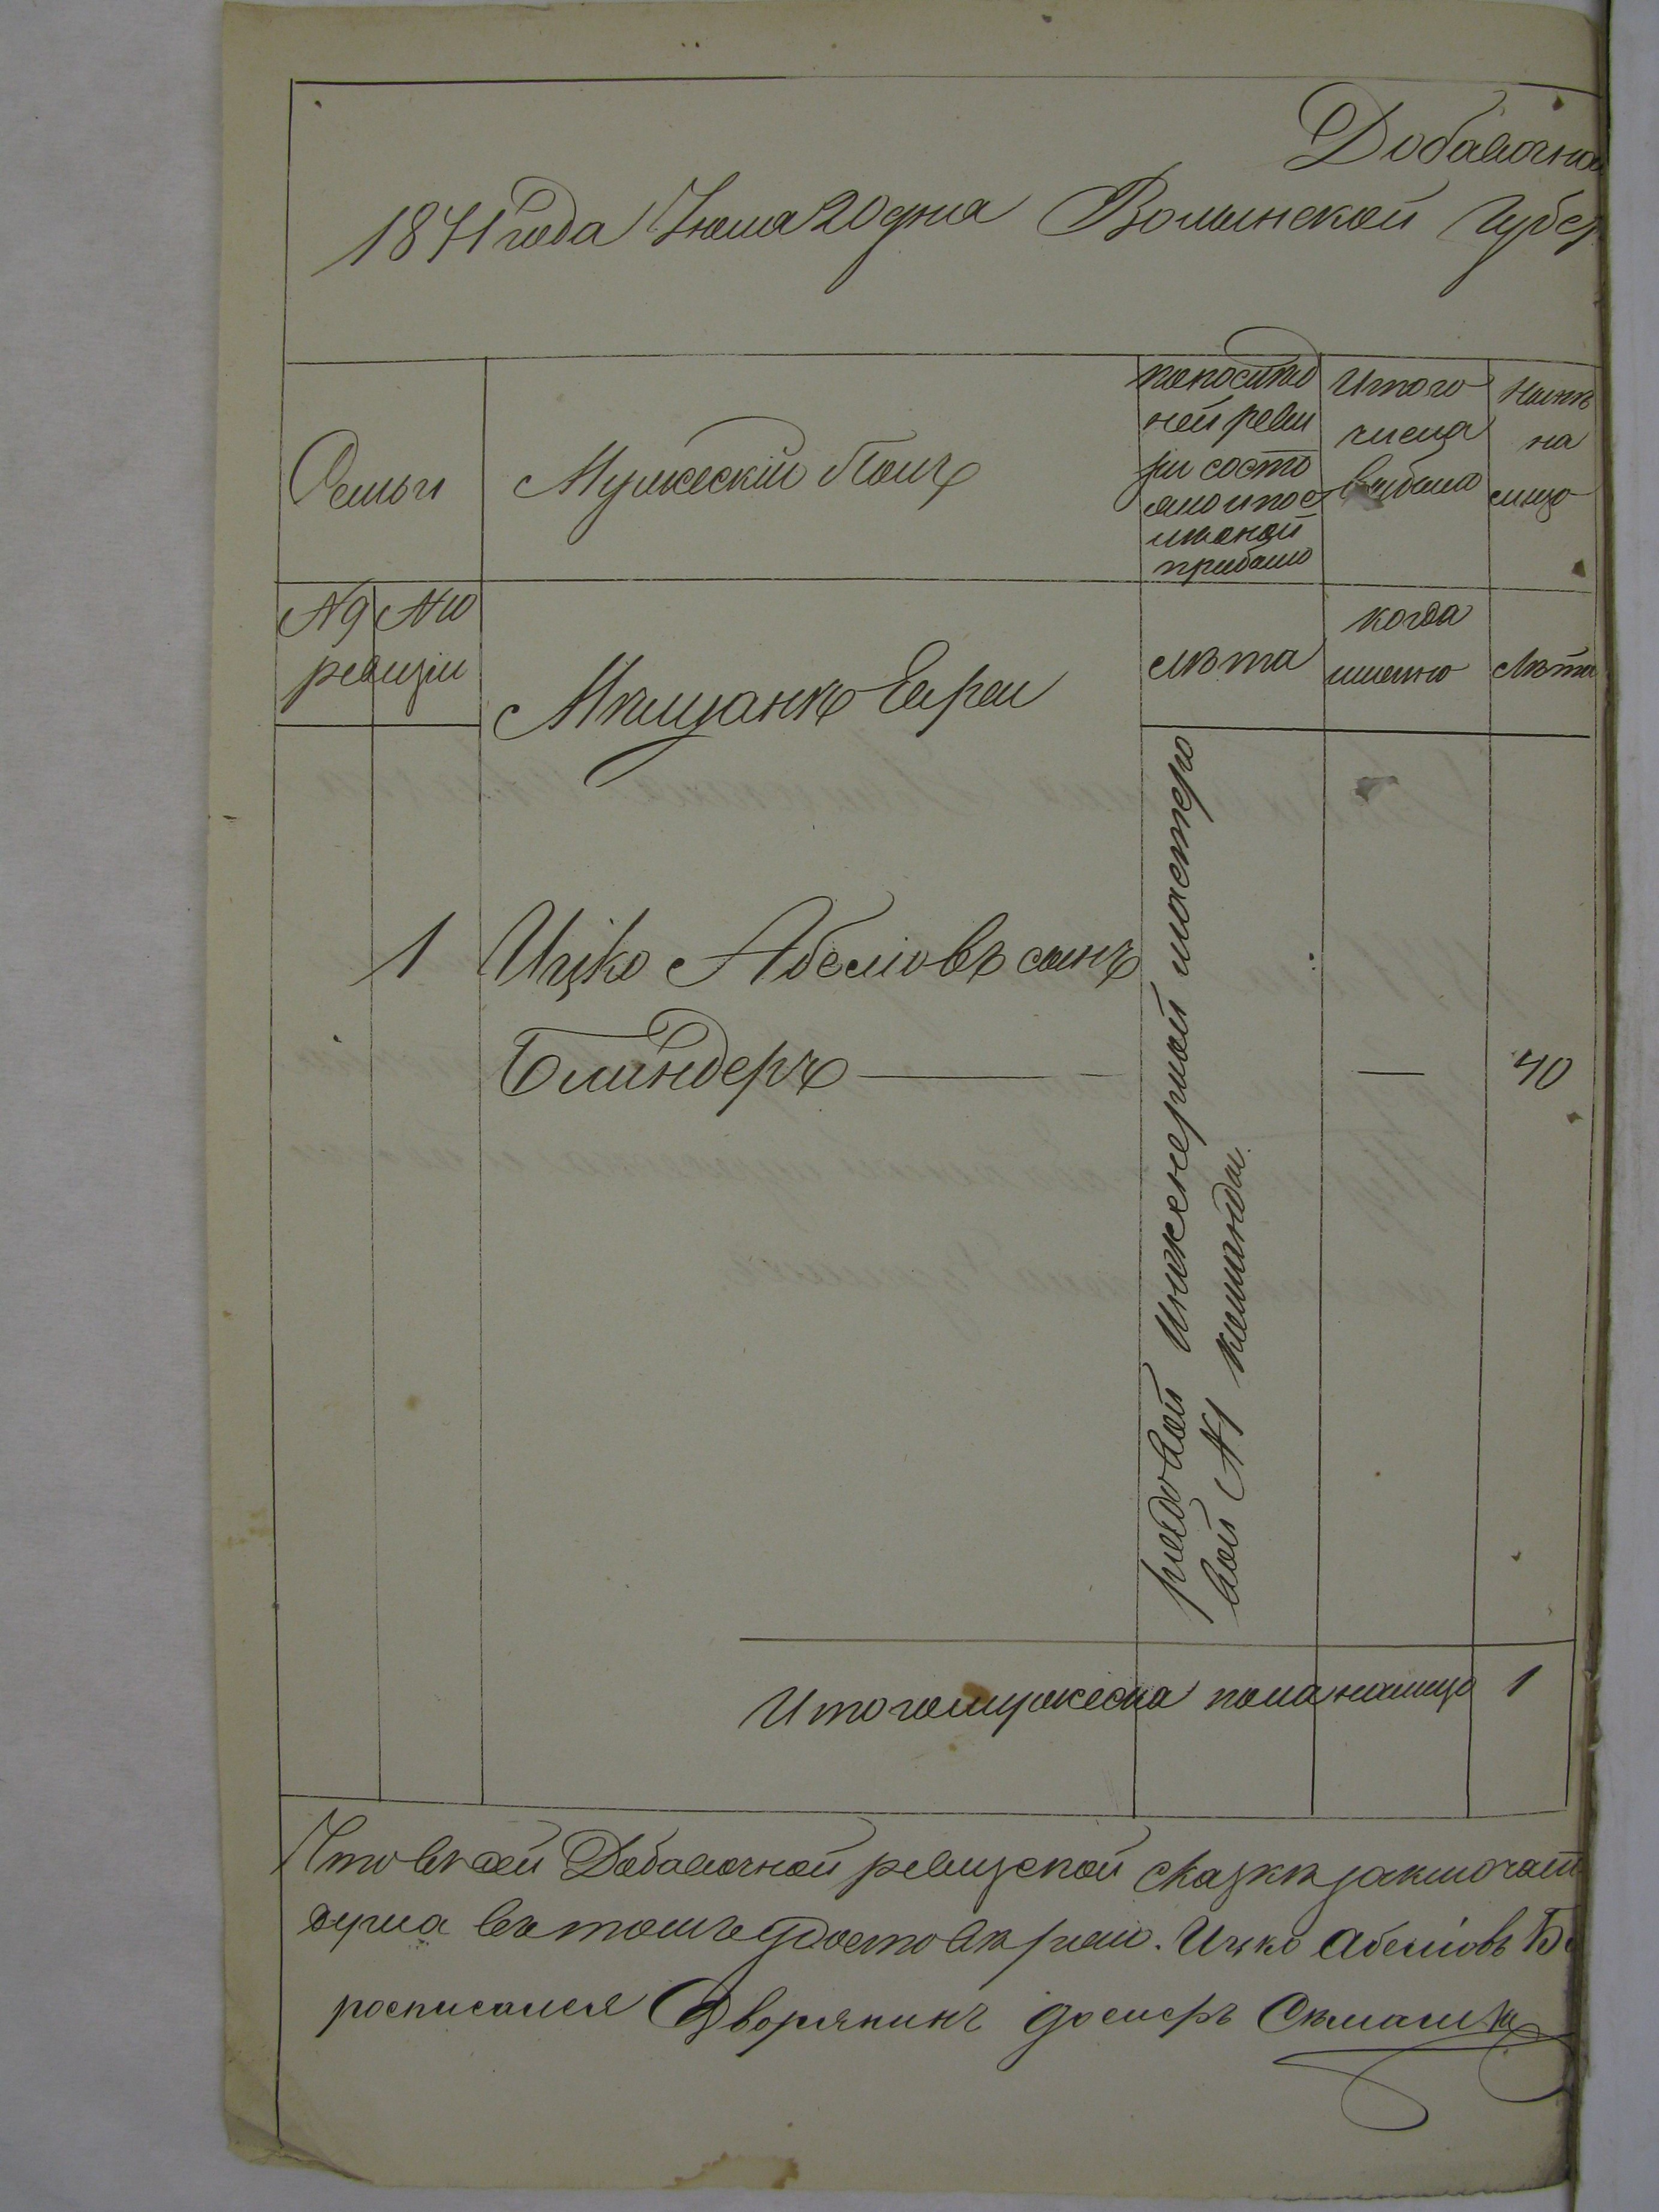 Добавочна
1871 года Июля 20 дня Волынской Губер
Семьи
Мужескій Полъ
по послѣд
ней реви
зіи состо
яло и посл
ѣ оной
прибыло
Изъ того
числа
выбыло
Нынѣ
на
лицо
№ 9 № 10
ревизіи
Мѣщанѣ Евреи
лѣта
когда
именно
лѣта
1 Ицко Абелiовъ сынъ
Блиндеръ — — 40
рядовой инженерной мастеро
вой № 1 команды
Итого мужеска пола налицо 1
Что въ сей Добавочной ревизской сказкѣ заключает
душа въ томъ удостовѣряю. Ицко Абелiовъ Б
росписался Дворянинъ